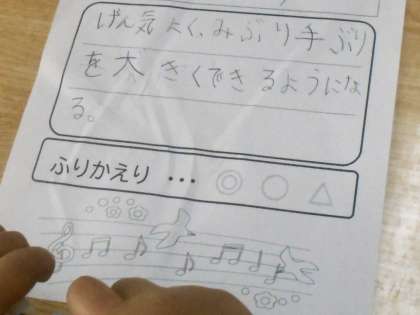 げん気よく、みぶり手ぶり
を大きくできるようにな
る。
ふりかえり … ◎ ○ △